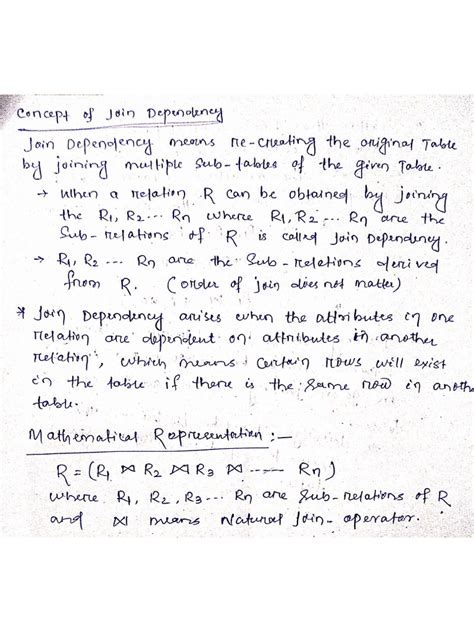 Concept of Join Dependency
Join Dependency means re-creating the original Table
by joining multiple sub-tables of the given Table.
→ When a relation R can be obtained by joining
the R1, R2 ... Rn where R1, R2 ... Rn are the
Sub-relations of R is called Join Dependency.
→ R1, R2 ... Rn are the Sub-relations derived
from R. (order of join does not matter)
* Join Dependency arises when the attributes in one
relation are dependent on attributes in another
relation, which means certain rows will exist
in the table if there is the same row in anothe
table.
Mathematical Representation :-
R = (R1 ⋈ R2 ⋈ R3 ⋈ ---- Rn)
where R1, R2, R3... Rn are Sub-relations of R
and ⋈ means Natural Join-operator.